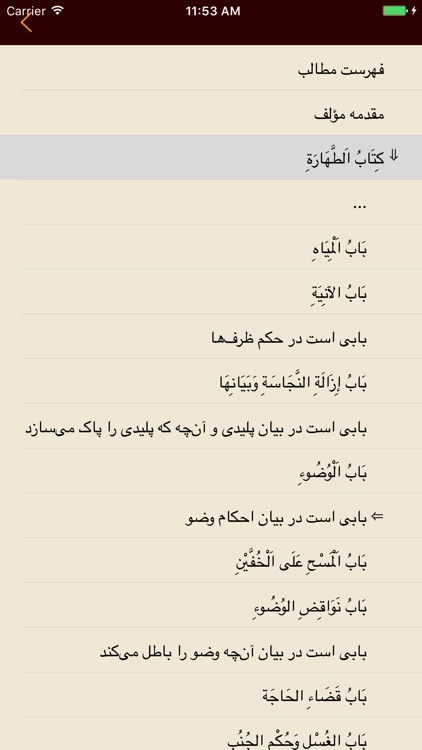 Carrier 11:53 AM
فهرست مطالب
مقدمه مؤلف
كِتَابُ اَلطَّهَارَةِ ⇓
...
بَابُ اَلْمِيَاهِ
بَابُ الآنِيَةِ
بابی است در حکم ظرف‌ها
بَابُ إِزَالَةِ النَّجَاسَةِ وَبَيَانِهَا
بابی است در بیان پلیدی و آن‌چه که پلیدی را پاک می‌سازد
بَابُ اَلْوُضُوءِ
⇐ بابی است در بیان احکام وضو
بَابُ اَلْمَسْحِ عَلَى اَلْخُفَّيْنِ
بَابُ نَوَاقِضِ الوُضُوءِ
بابی است در بیان آن‌چه وضو را باطل می‌کند
بَابُ قَضَاءِ الحَاجَة
بَابُ الغُسْلِ وَحُكْمِ الجُنُبِ